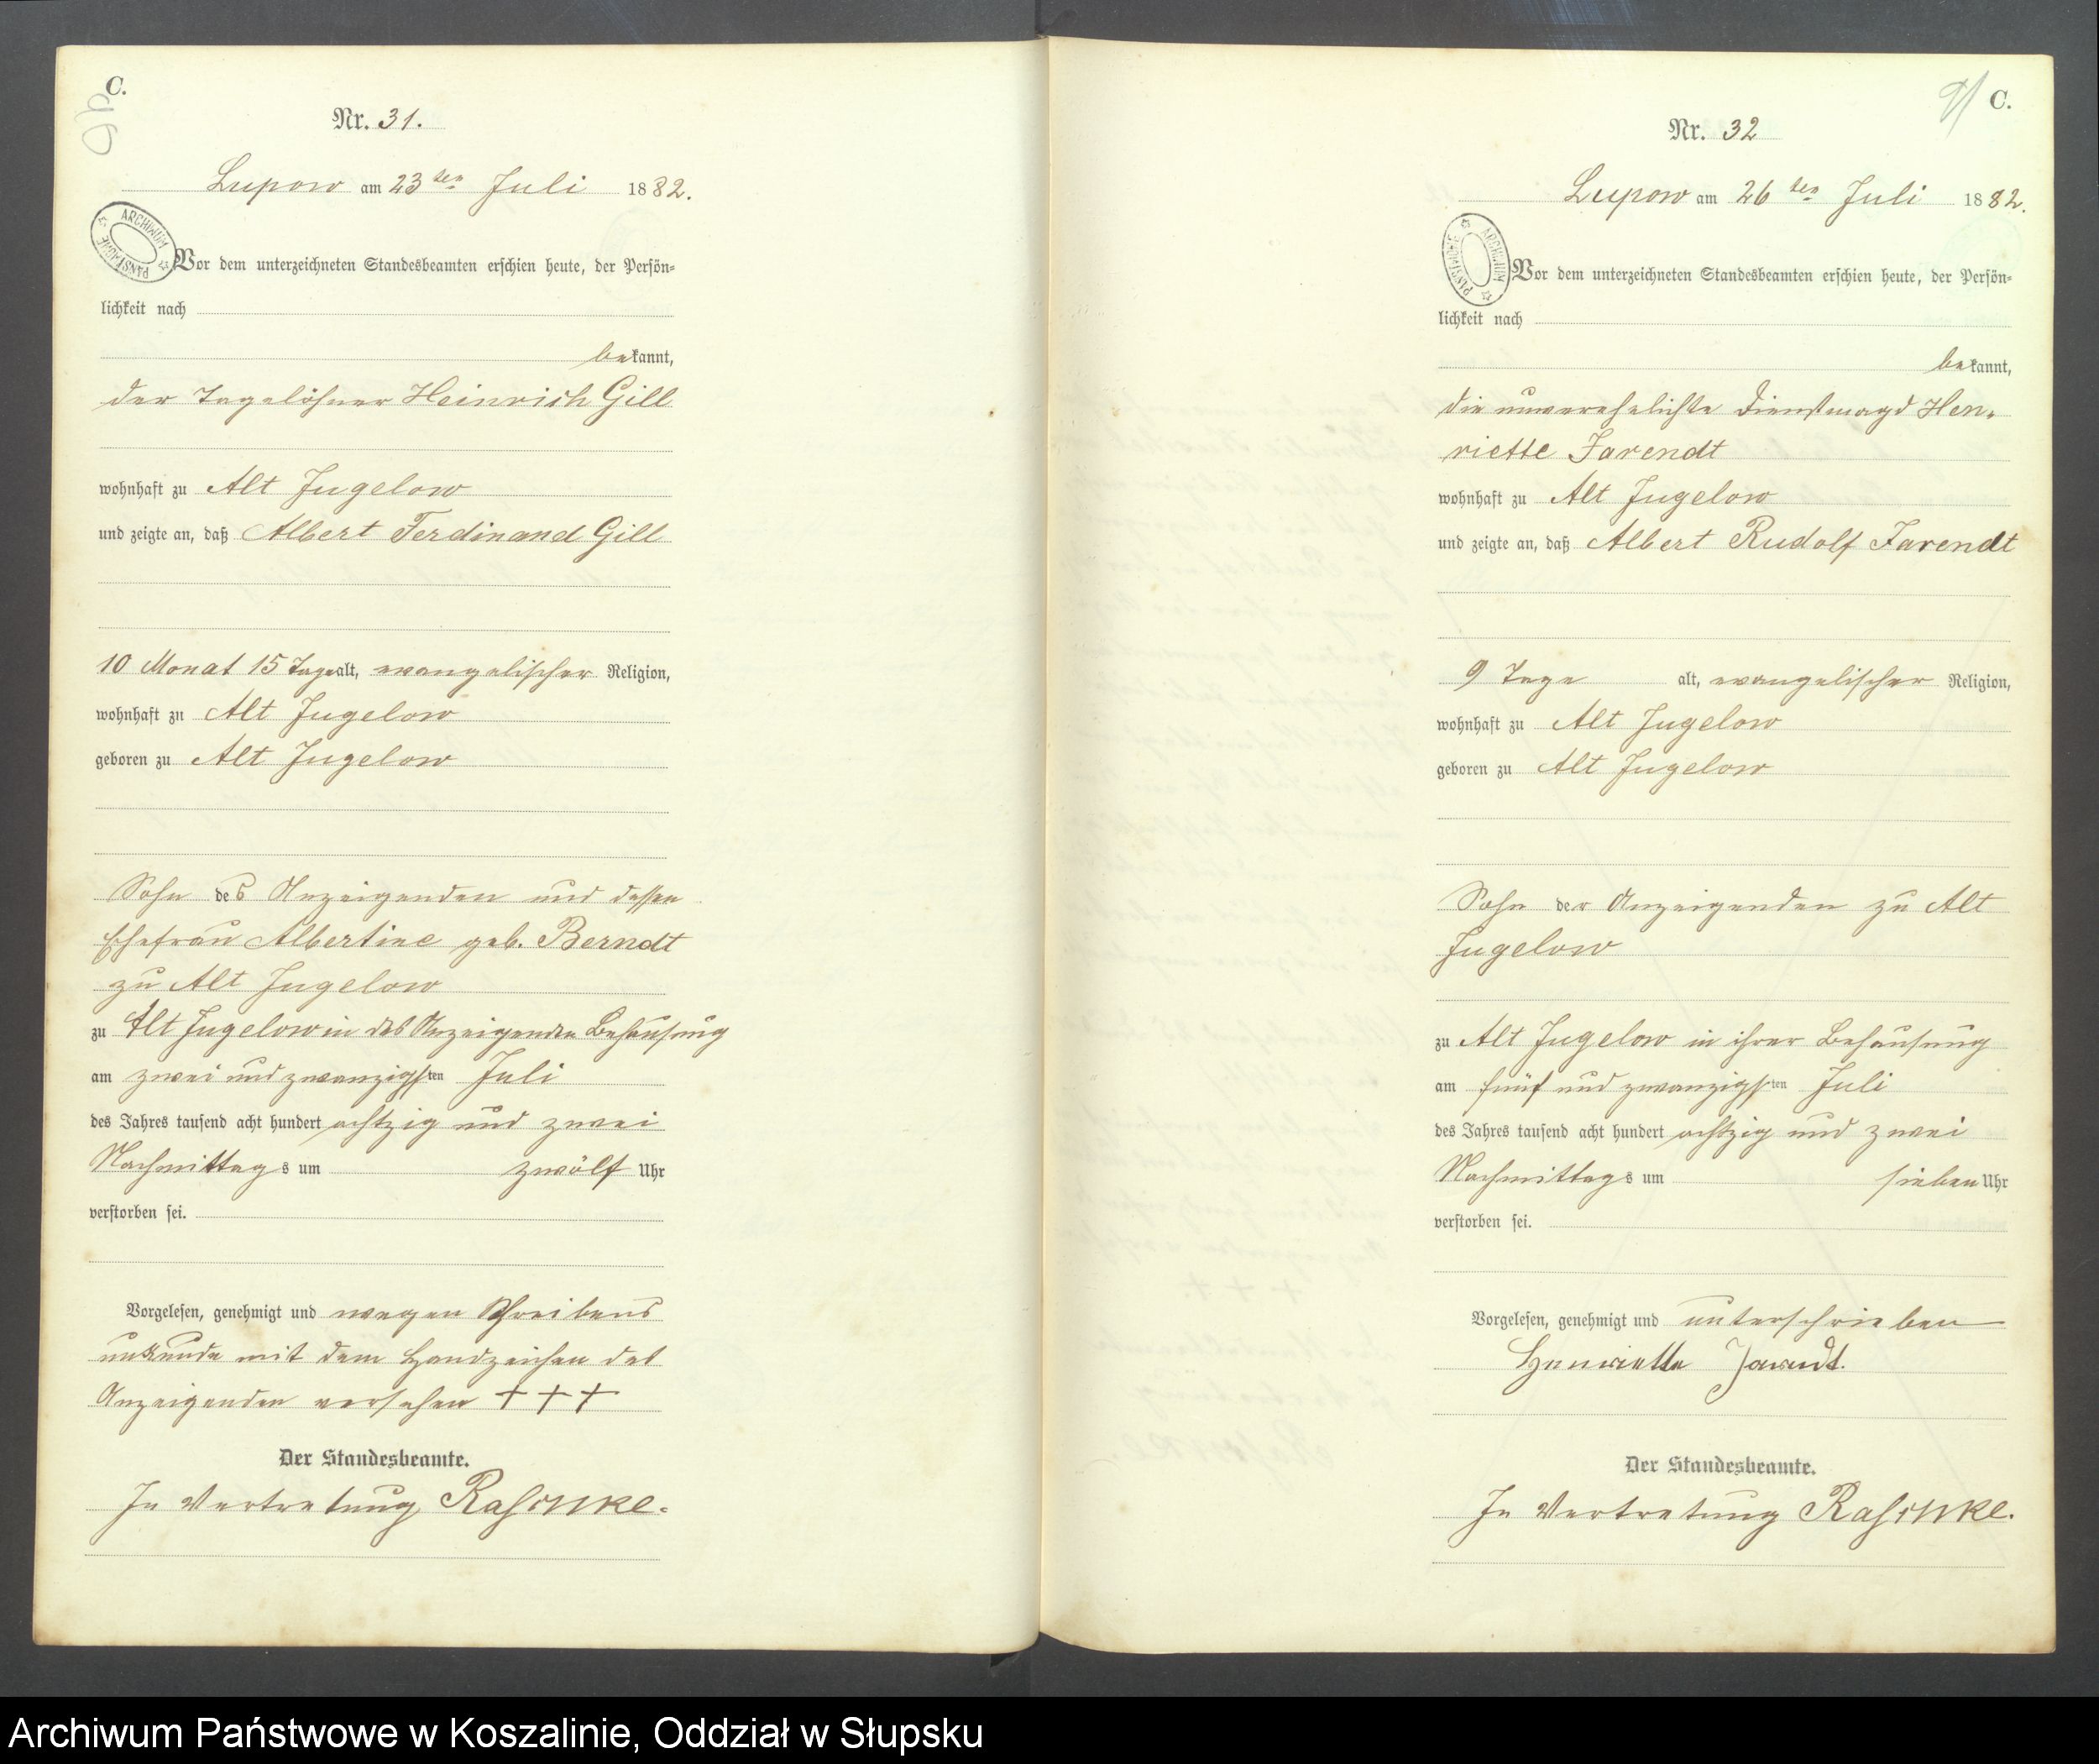 C.
Nr. 31.
Lupow am 23ten Juli 1882.
ARCHIWUM PAŃSTWOWE
Vor dem unterzeichneten Standesbeamten erschien heute, der Persön=
lichkeit nach
bekannt,
der Tagelöhner Heinrich Gill
wohnhaft zu Alt Jugelow
und zeigte an, daß Albert Ferdinand Gill
10 Monat 15 Tage alt, evangelischer Religion,
wohnhaft zu Alt Jugelow
geboren zu Alt Jugelow
Sohn des Anzeigenden und dessen
Ehefrau Albertine geb. Berndt
zu Alt Jugelow
zu Alt Jugelow in des Anzeigenden Behausung
am zwei und zwanzigsten Juli
des Jahres tausend acht hundert achtzig und zwei
Nachmittags um zwölf Uhr
verstorben sei.
Vorgelesen, genehmigt und wegen Schreibens
unkunde mit dem Handzeichen des
Anzeigenden versehen +++
Der Standesbeamte.
In Vertretung Raschke.
91 C.
Nr. 32
Lupow am 26ten Juli 1882.
ARCHIWUM PAŃSTWOWE
Vor dem unterzeichneten Standesbeamten erschien heute, der Persön=
lichkeit nach
bekannt,
die unverehelichte Dienstmagd Hen=
riette Jarendt
wohnhaft zu Alt Jugelow
und zeigte an, daß Albert Rudolf Jarendt
9 Tage alt, evangelischer Religion,
wohnhaft zu Alt Jugelow
geboren zu Alt Jugelow
Sohn der Anzeigenden zu Alt
Jugelow
zu Alt Jugelow in ihrer Behausung
am fünf und zwanzigsten Juli
des Jahres tausend acht hundert achtzig und zwei
Nachmittags um sieben Uhr
verstorben sei.
Vorgelesen, genehmigt und unterschrieben
Henriette Jarendt.
Der Standesbeamte.
In Vertretung Raschke.
Archiwum Państwowe w Koszalinie, Oddział w Słupsku